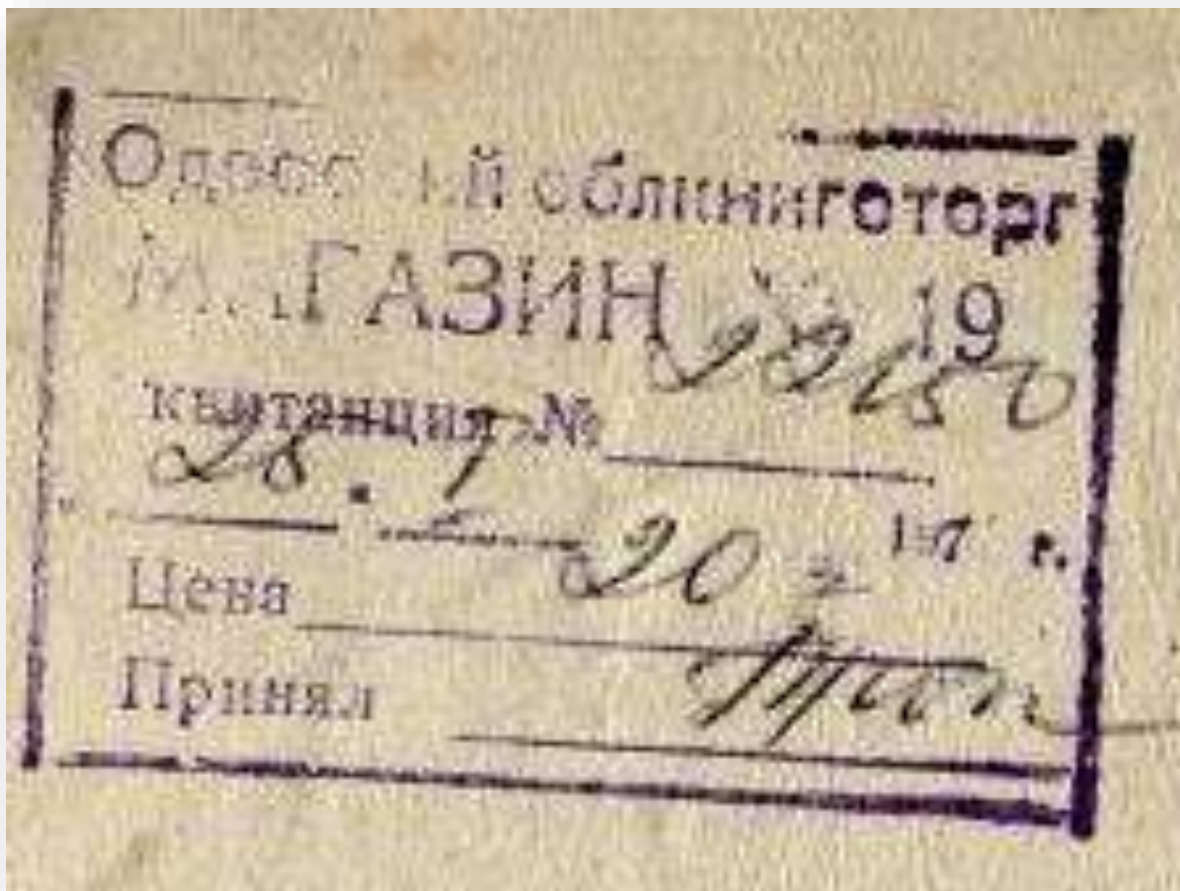 Одесский облкниготорг
МАГАЗИН № 19
квитанция № 22150
28. I
Цена 20
Принял